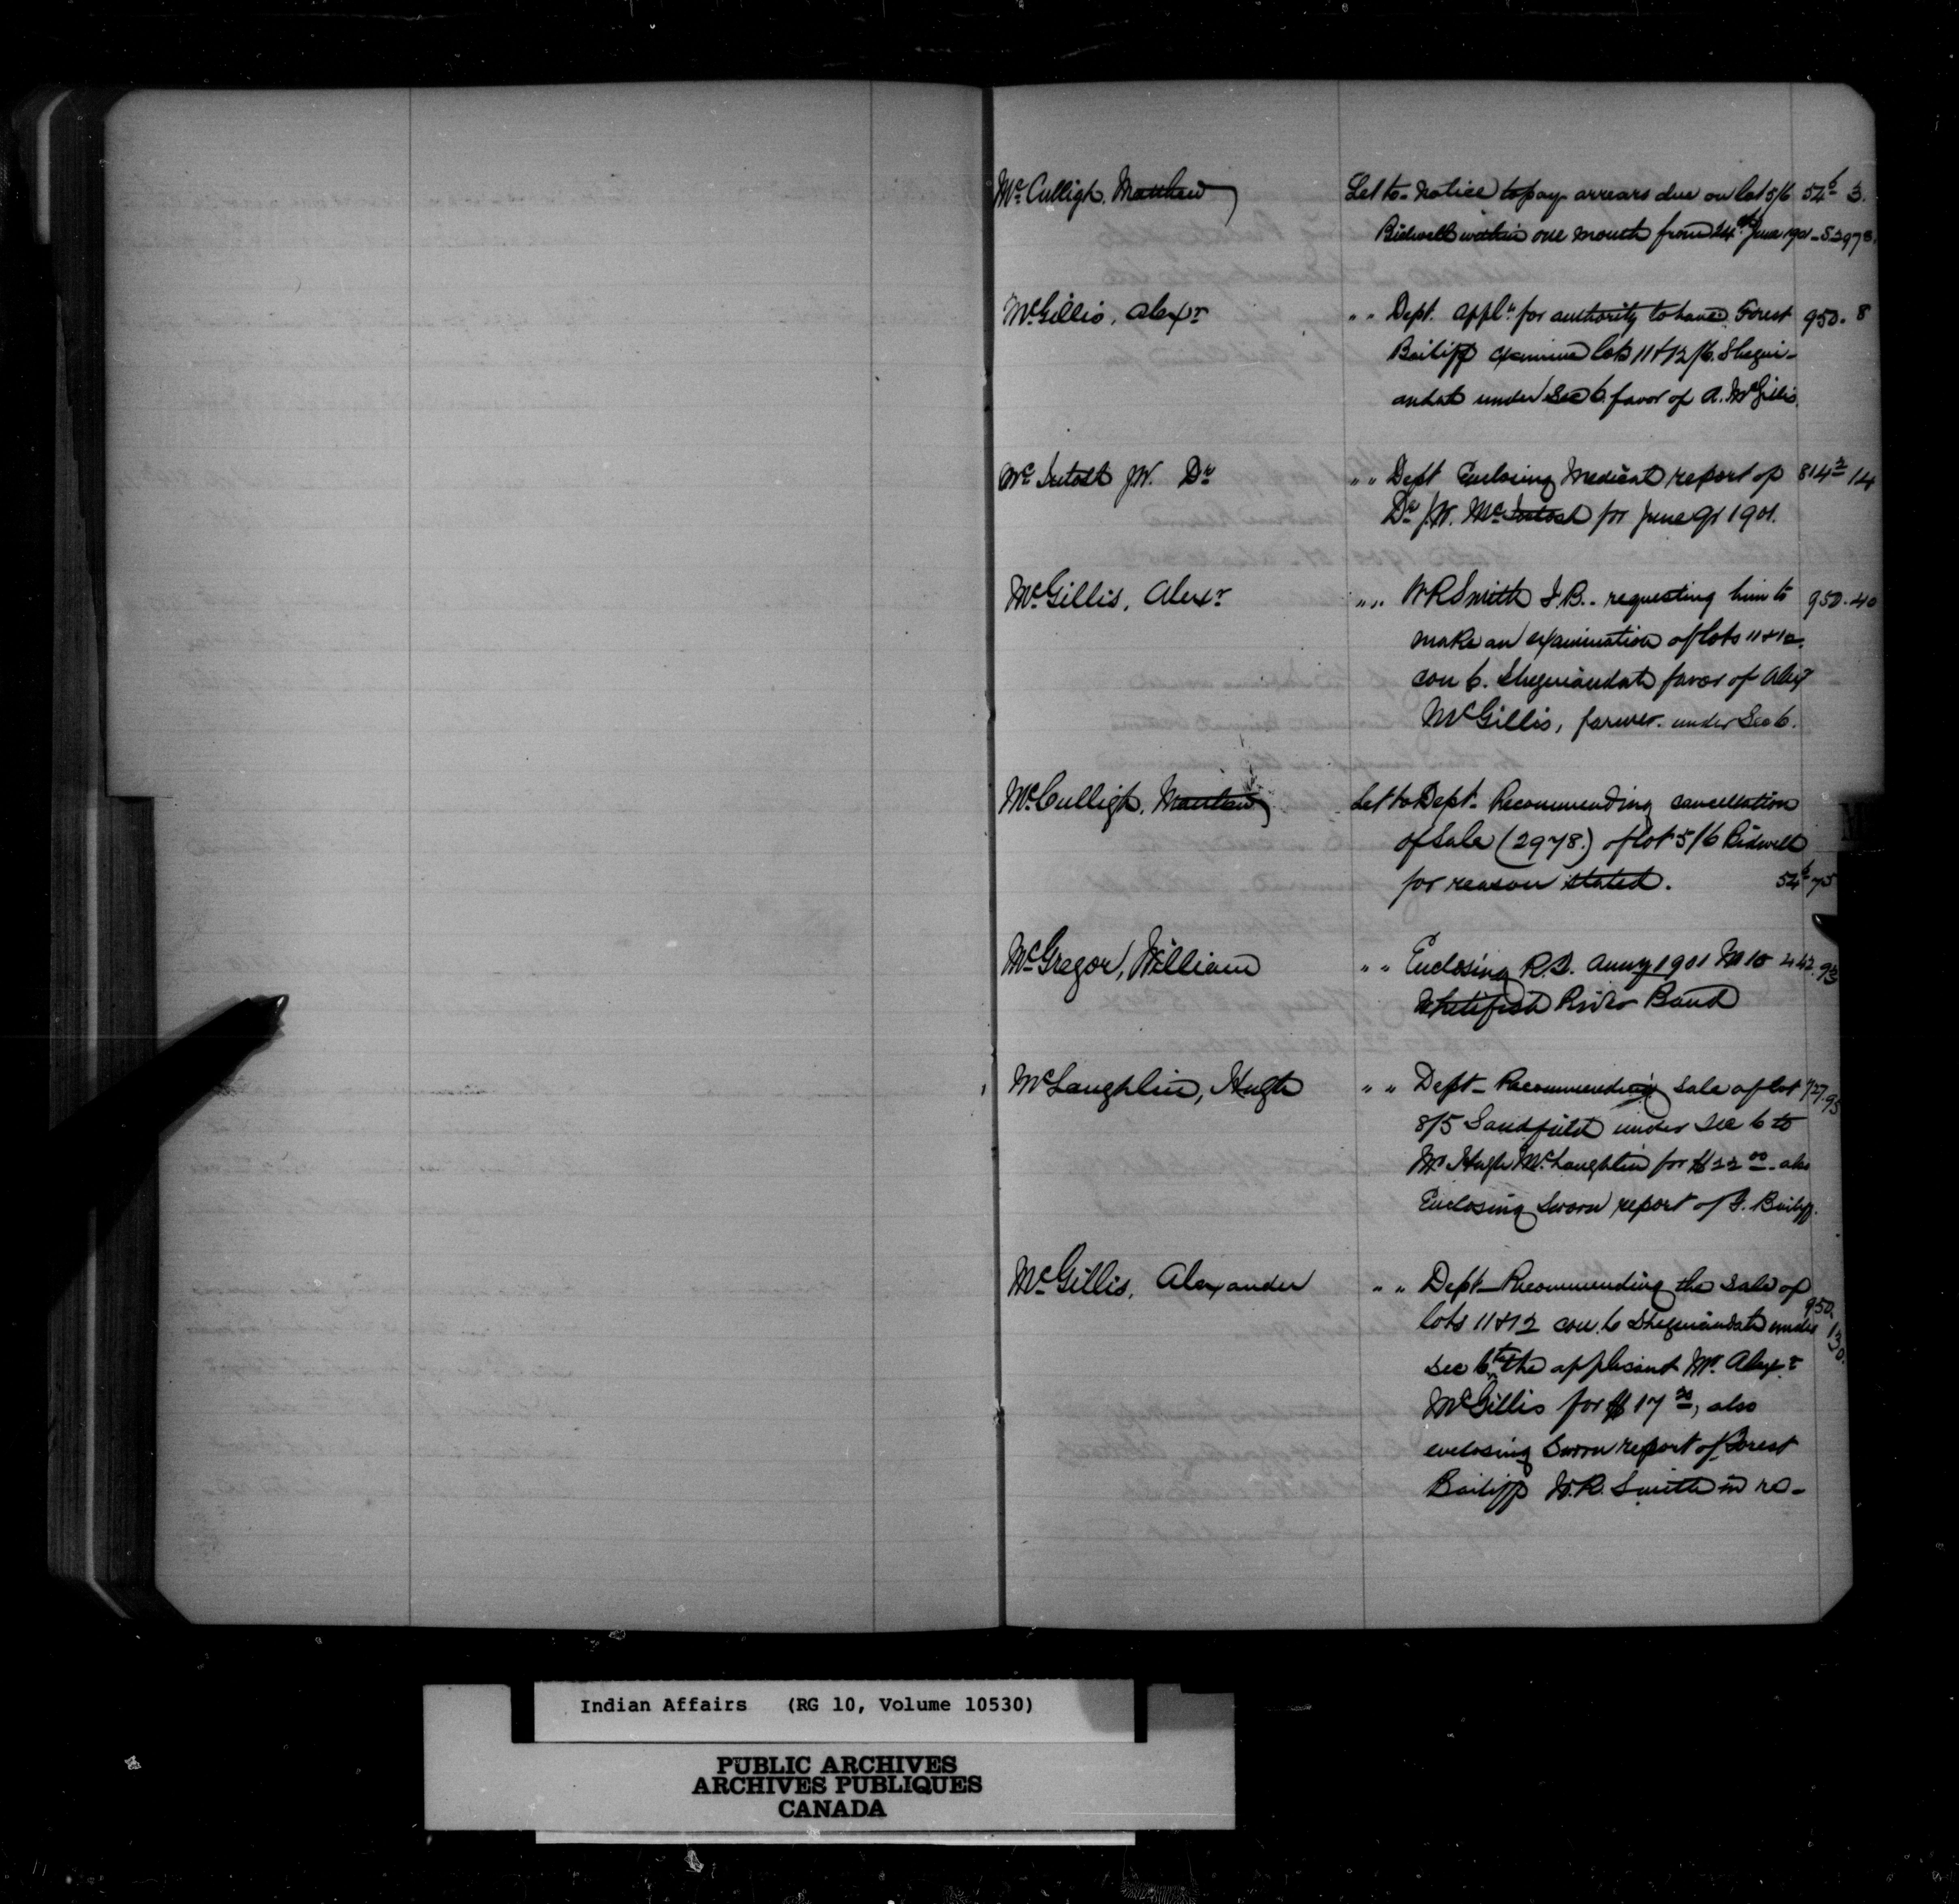 McCulligh, Matthew Let to - notice to pay arrears due on lot 5/6 54 6 3.
Bidwell within one month from 24th June 1901 -
McGillis, Alexr " " Dept. appln for authority to have Forest 950. 8
Bailiff examine lots 11 & 12/6. Shegui-
andah under Sec 6. favor of A. McGillis.
McIntosh J.W. Dr " " Dept Enclosing Medical report of 814 2 14
Dr J.W. McIntosh for June qr 1901.
McGillis, Alexr " " W R Smith F.B. - requesting him to 950. 40
make an examination of lots 11 & 12
con 6. Sheguiandah favor of Alexr
McGillis, farmer. under Sec 6.
McCulligh, Matthew Let to Dept - Recommending cancellation
of Sale (2978.) of lot 5/6 Bidwell
for reason stated. 54 6 75
McGregor, William " " Enclosing R.D. 1901 No 10 442. 93
Whitefish River Band
McLaughlin, Hugh " " Dept - Recommending sale of lot 727. 95
8/5 Sandfield under Sec 6 to
Mr Hugh McLaughlin for $22 00 - also
Enclosing Sworn report of F. Bailiff.
McGillis, Alexander " " Dept - Recommending the sale of
lots 11 & 12 con. 6 Sheguiandah under 950. 130.
sec 6 to the applicant Mr. Alexr
McGillis for $17 20, also
enclosing Sworn report of Forest
Bailiff W.R. Smith in re-
Indian Affairs (RG 10, Volume 10530)
PUBLIC ARCHIVES
ARCHIVES PUBLIQUES
CANADA